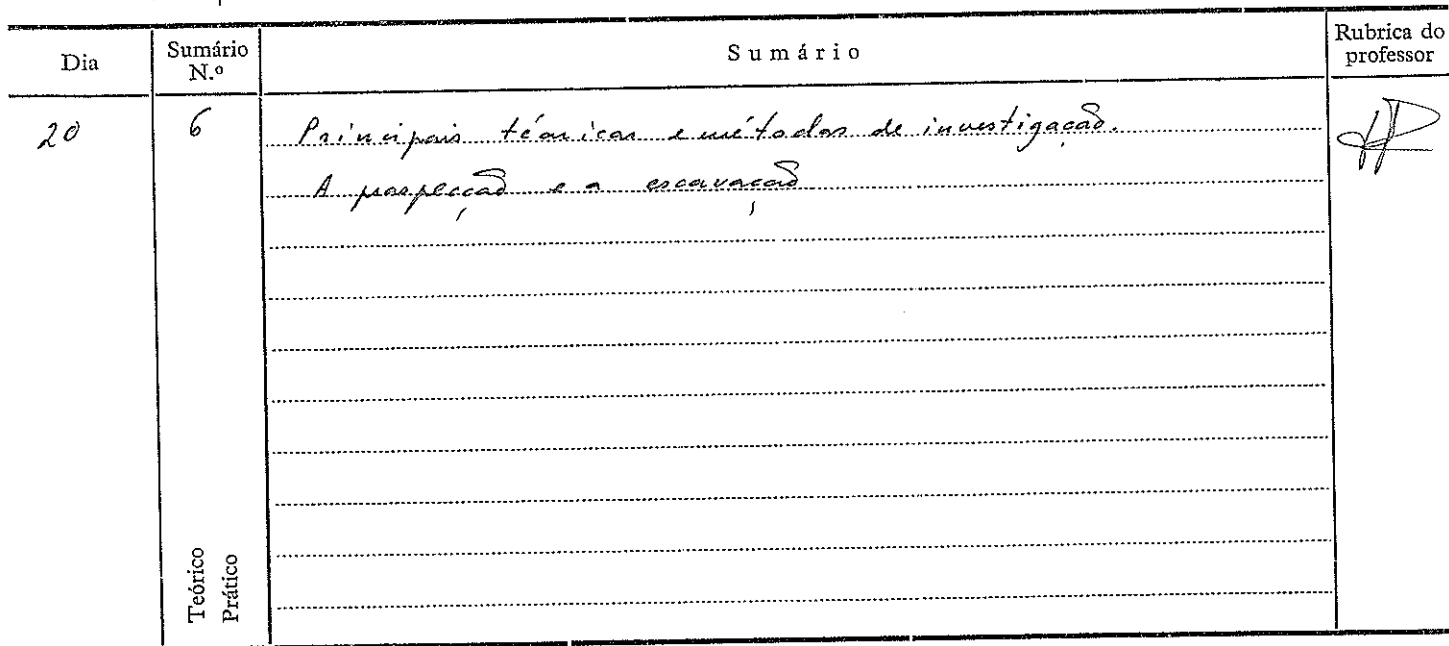 Dia
Sumário N.º
Sumário
Rubrica do professor
20
6
Principais técnicas e métodos de investigação.
A prospecção e a escavação
Teórico
Prático